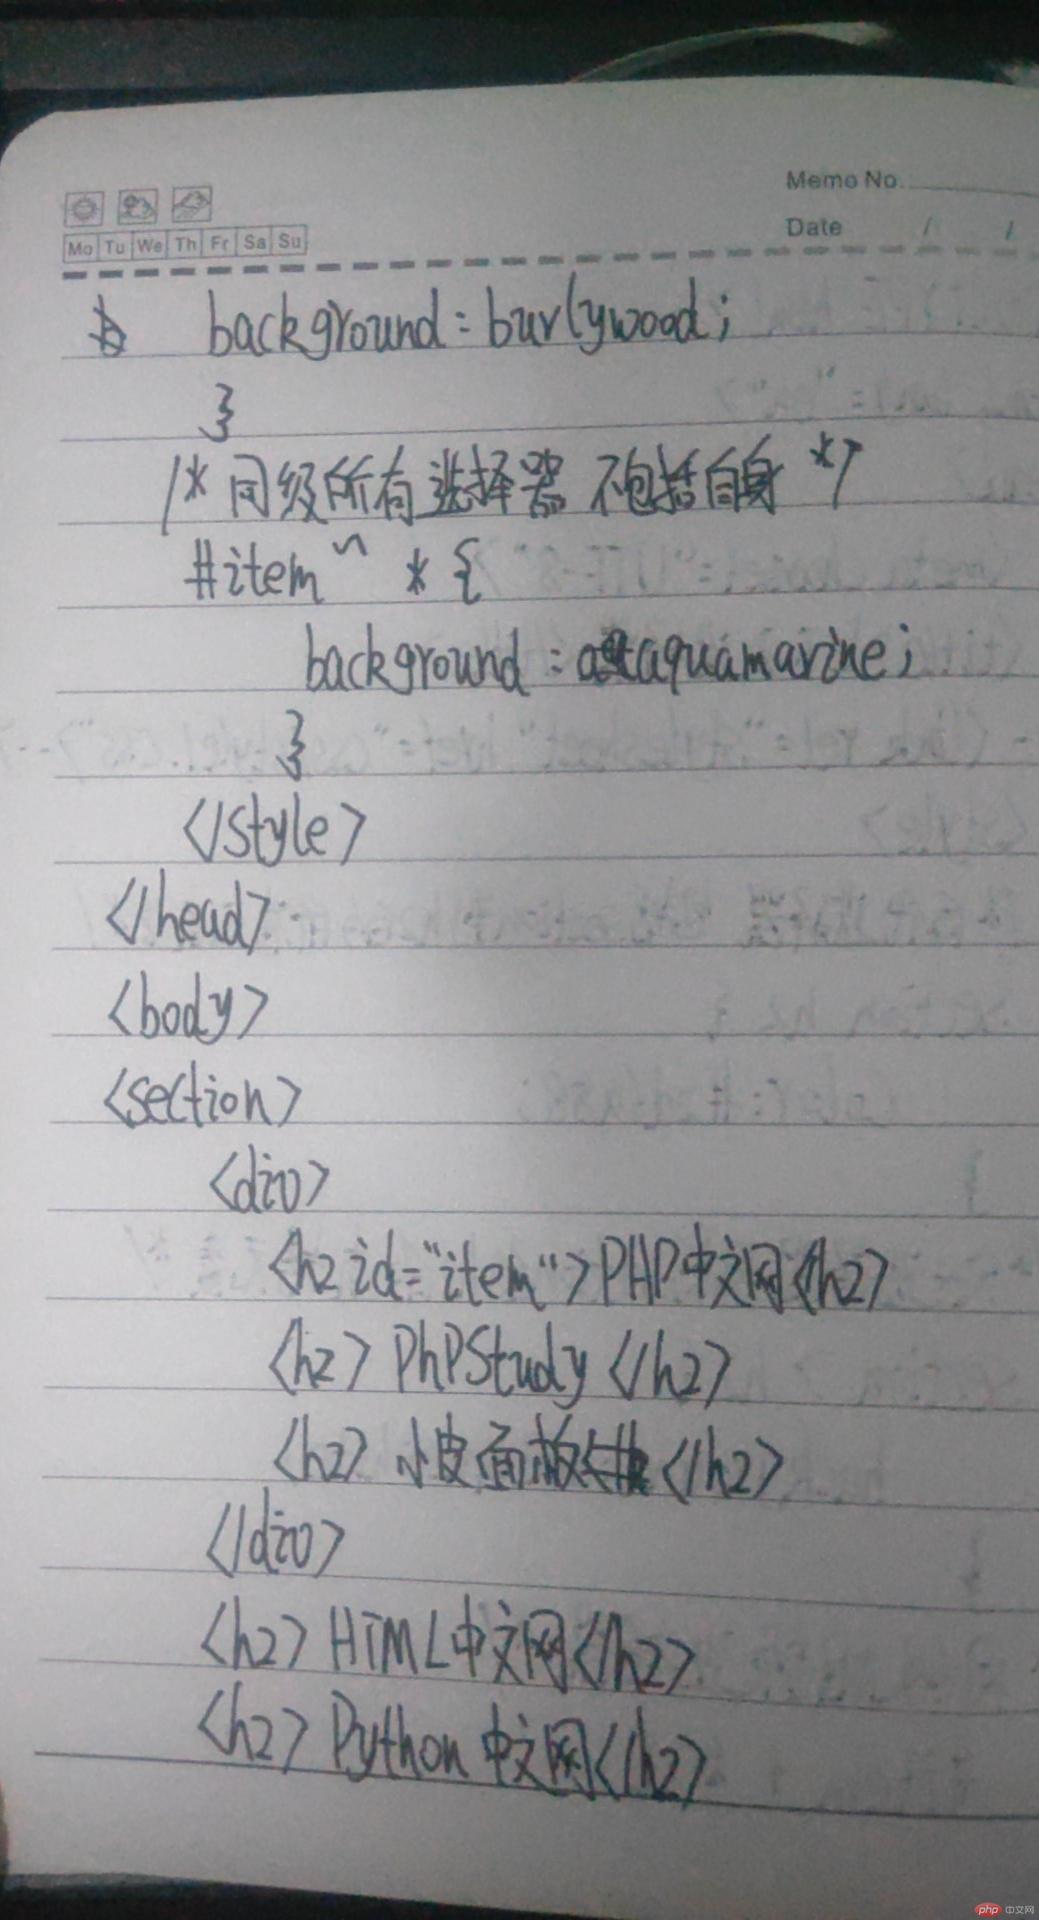 Memo No.
Date / /
Mo Tu We Th Fr Sa Su
background : burlywood;
}
/* 同级所有选择器 不包括自身 */
#item ~ * {
background : aquamarine;
}
</style>
</head>
<body>
<section>
<div>
<h2 id="item">PHP中文网</h2>
<h2> PhPStudy </h2>
<h2> 小皮面板 </h2>
</div>
<h2> HTML中文网</h2>
<h2> Python 中文网</h2>
php 中文网